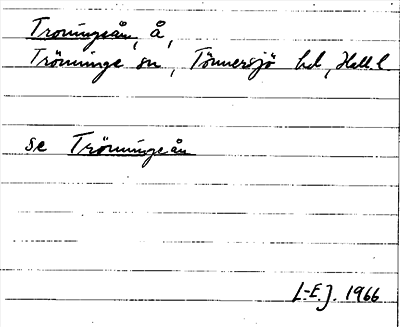 Troningeån, å,
Trönninge sn, Tönnersjö hd, Hall. l
se Trönningeån
L-E.J. 1966